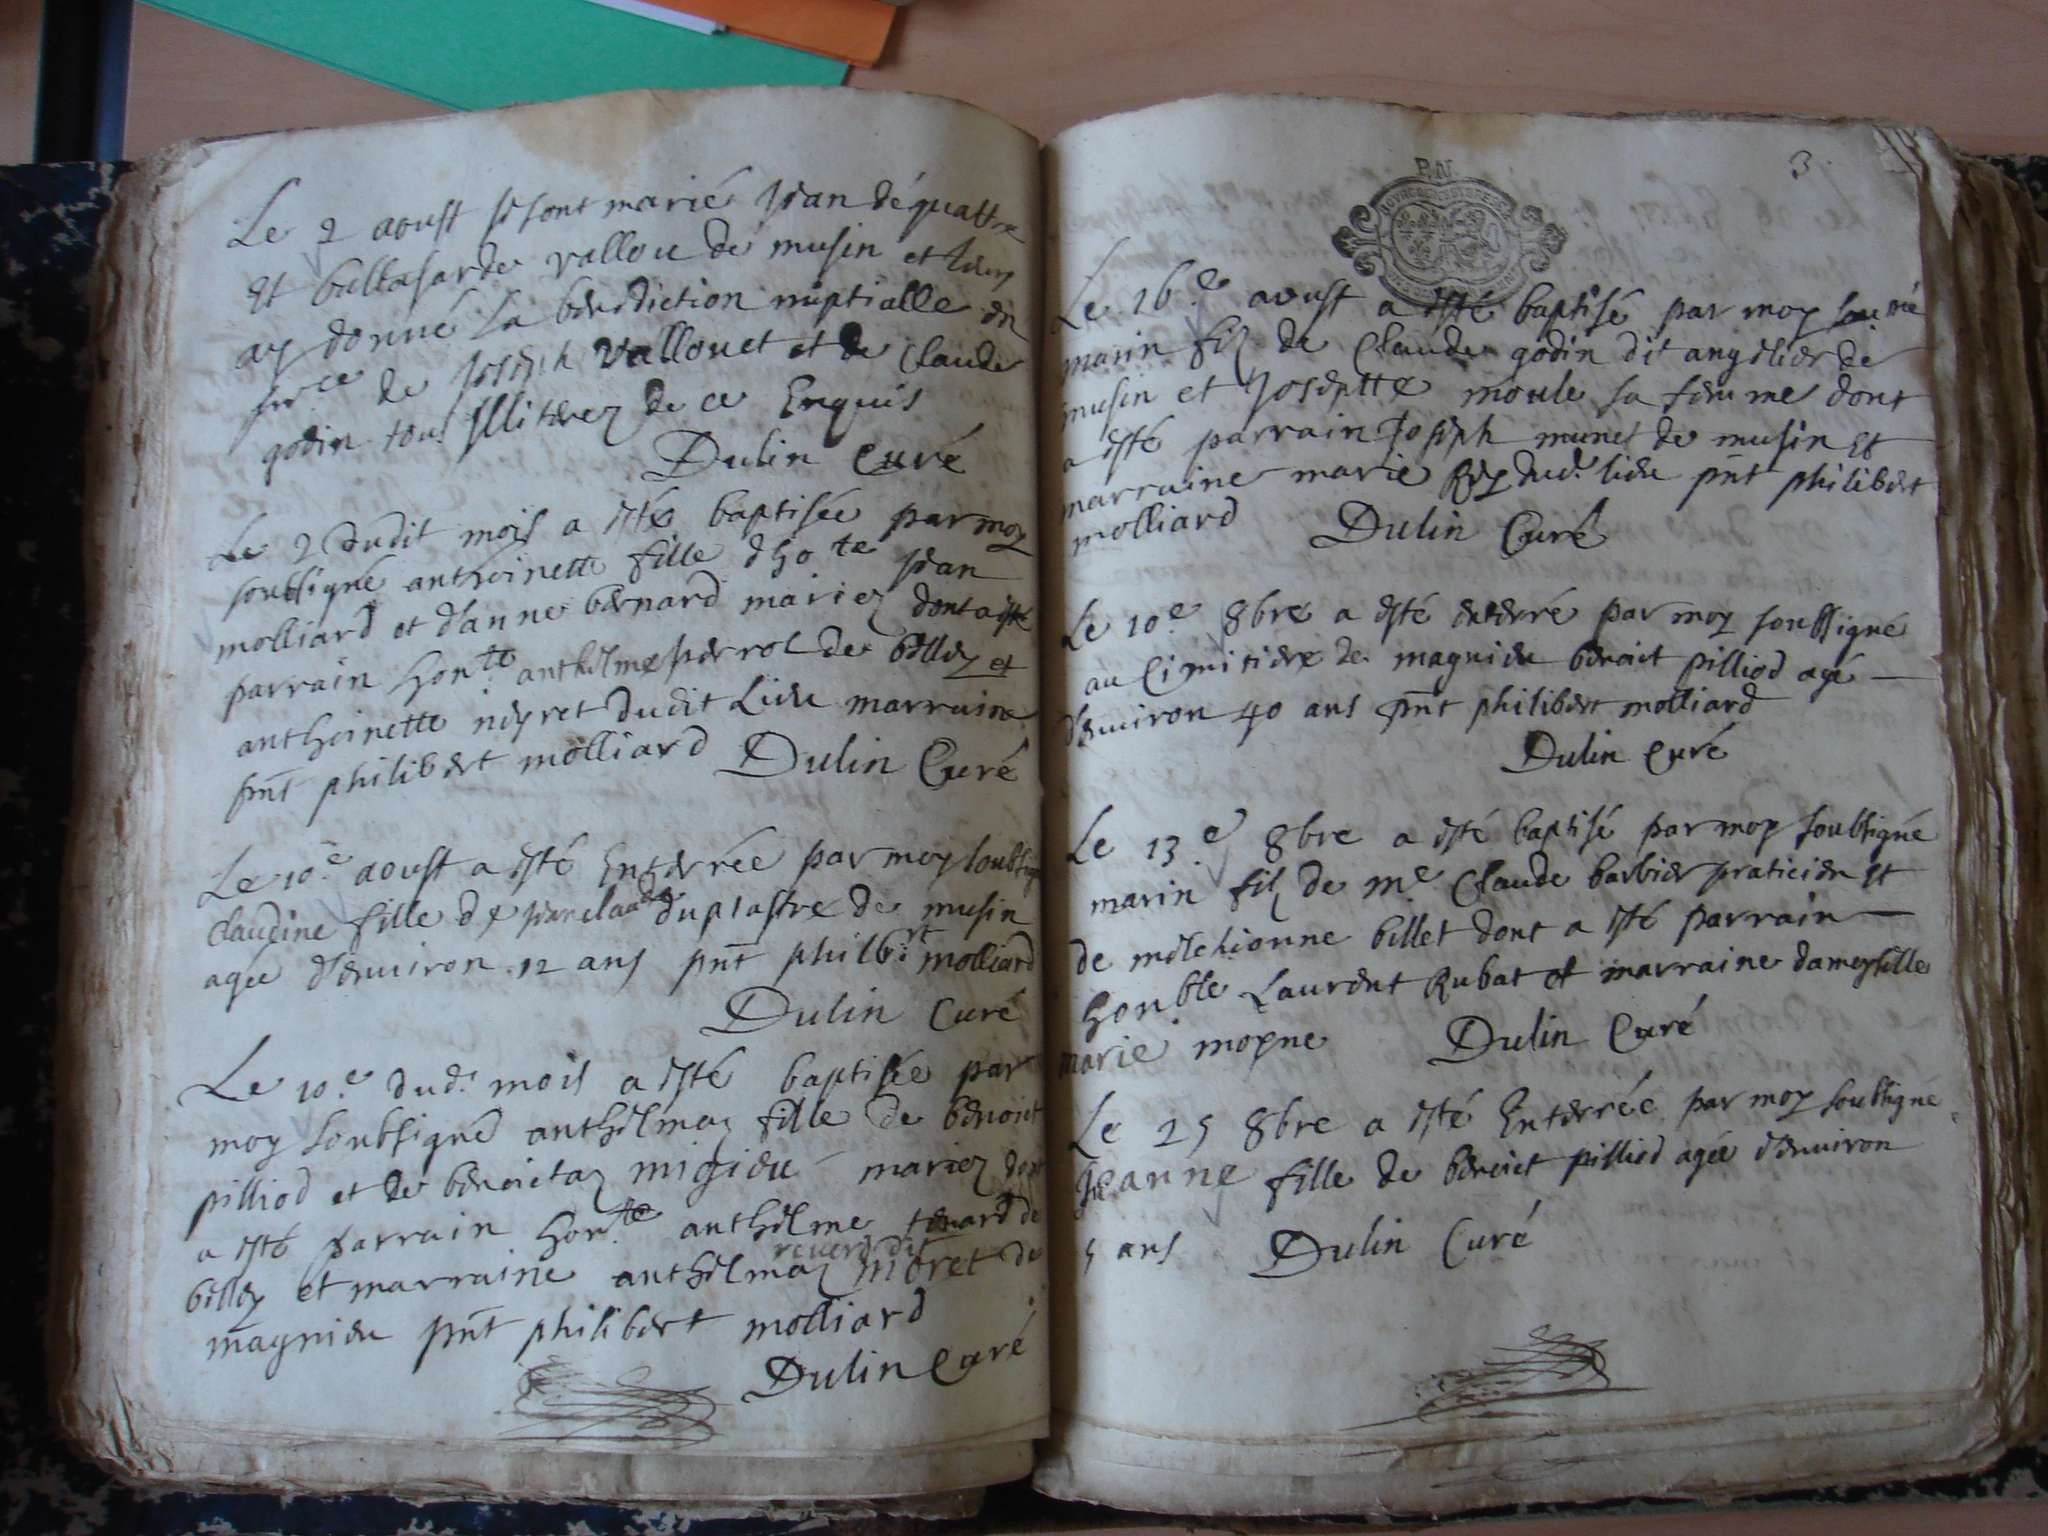 Le 2 aoust se sont marié Jean déquattre
Et baltasarde vallou de musin et leur
ay donné la benediction nuptialle en
pnce de Joseph Vallouet et de Claude
godin tous illiterez de ce Enquis
Dulin Curé
Le 2 dudit mois a esté baptisée par moy
soubsigné anthoinette fille dhote Jean
molliard et d'anne bernard mariez dont a esté
parrain honte anthelme perrol de billez et
anthoinette neyret dudit Lieu marraine
pnt philibert molliard Dulin Curé
Le 10e aoust a esté Enterrée par moy soubsigné
Claudine fille de Jean claude duplastre de musin
agée d'environ 12 ans pnt philbrt molliard
Dulin Curé
Le 10e dud. mois a esté baptisée par
moy soubsigné anthelmaz fille de benoict
pilliod et de benoictaz migieu mariez dont
a esté parrain honte anthelme tenard de
reverd dit
billez et marraine anthelmaz moret de
magnieu pnt philibert molliard
Dulin Curé
3.
P.N.
Le 16e aoust a esté baptisé par moy
marin filz de Claude godin dit angelier de
musin et Joseptte moule sa femme dont
a esté parrain Joseph munet de musin Et
marraine marie Rey dud. lieu pnt philibert
molliard Dulin Curé
Le 10e 8bre a esté enterré par moy soubsigné
au Cimitiere de magnieu benoict pilliod agé
d'environ 40 ans pnt philibert molliard
Dulin Curé
Le 13e 8bre a esté baptisé par moy soubsigné
marin filz de me Claude barbier praticien et
de melchionne billet dont a esté parrain
honble Laurent Rubat et marraine damoyselle
marie moyne Dulin Curé
Le 25 8bre a esté Enterrée par moy soubsigné
Jeanne fille de benoict pilliod agée d'environ
5 ans Dulin Curé